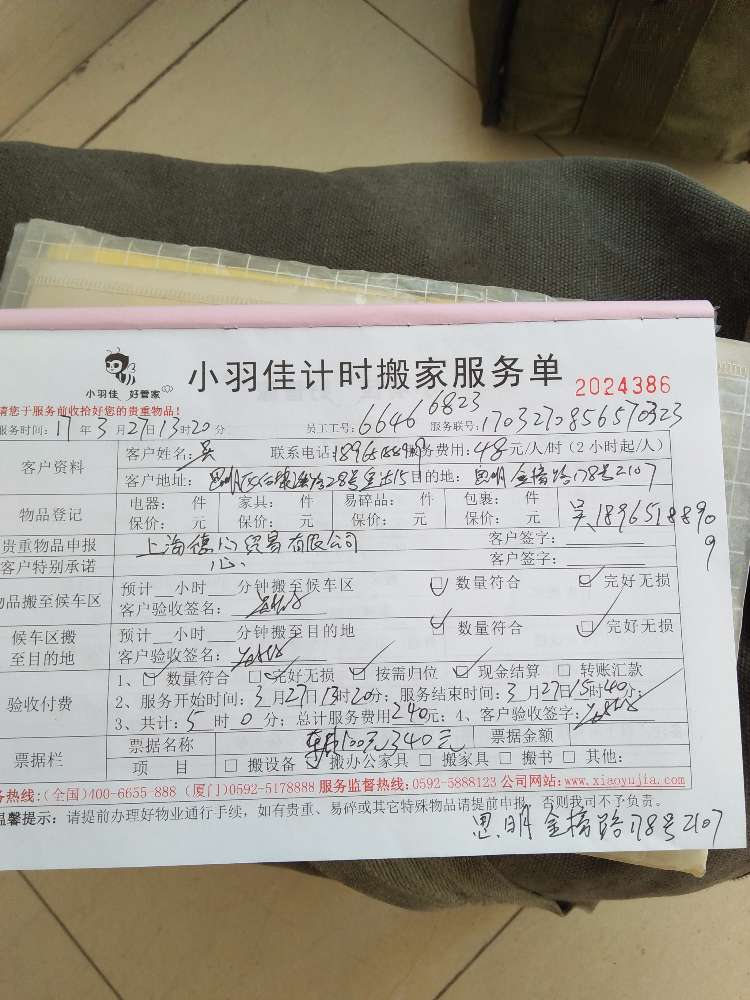 小羽佳 好管家
小羽佳计时搬家服务单 2024386
请您于服务前收拾好您的贵重物品!
服务时间: 17 年 3 月 27 日 13 时 20 分 员工工号: 6646 6823 服务联号: 1703270856570323
客户资料 客户姓名: 吴 联系电话: 服务费用: 48 元/人/时 (2 小时起/人)
客户地址: 思明区 28号 15 目的地: 思明金榜路178号2107
物品登记 电器: 件 家具: 件 易碎品: 件 包裹: 件 吴 18965188909
保价: 元 保价: 元 保价: 元 保价: 元
贵重物品申报 上海 贸易有限公司 客户签字:
客户特别承诺 客户签字:
物品搬至候车区 预计 小时 分钟搬至候车区 ☑ 数量符合 ☑ 完好无损
客户验收签名:
候车区搬至目的地 预计 小时 分钟搬至目的地 ☑ 数量符合 ☑ 完好无损
客户验收签名:
验收付费 1、☑ 数量符合 ☑ 完好无损 ☑ 按需归位 ☑ 现金结算 □ 转账汇款
2、服务开始时间: 3 月 27 日 13 时 20 分; 服务结束时间: 3 月 27 日 15 时 40 分;
3、共计: 5 时 0 分; 总计服务费用 240 元; 4、客户验收签字:
票据栏 票据名称 车费100元 340元 票据金额
项 目 □ 搬设备 □ 搬办公家具 □ 搬家具 □ 搬书 □ 其他:
务热线: (全国)400-6655 888 (厦门)0592-5178888 服务监督热线: 0592-5888123 公司网站: www.xiaoyujia.com
温馨提示: 请提前办理好物业通行手续, 如有贵重、易碎或其它特殊物品请提前申报, 否则我司不予负责。
思明金榜路178号2107